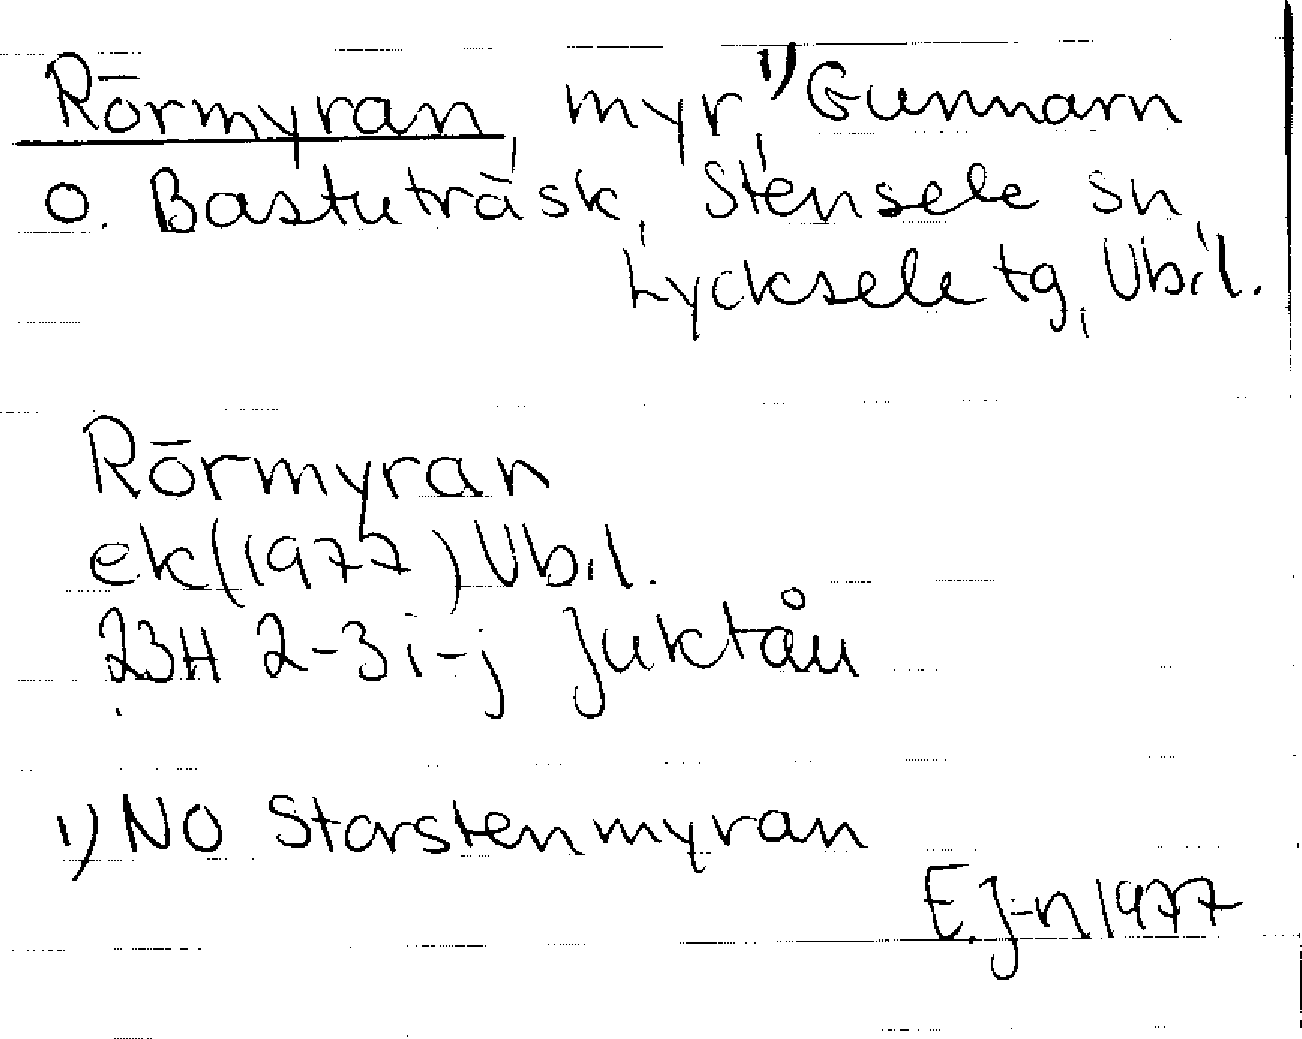 Rörmyran, myr,¹⁾ Gunnarn
o. Bastuträsk, Stensele sn,
Lycksele tg, Vb.l.
Rörmyran
ek (1977) Vb.l.
23H 2-3 i-j Juktån
1) NO Storstenmyran
E.J-n 1977